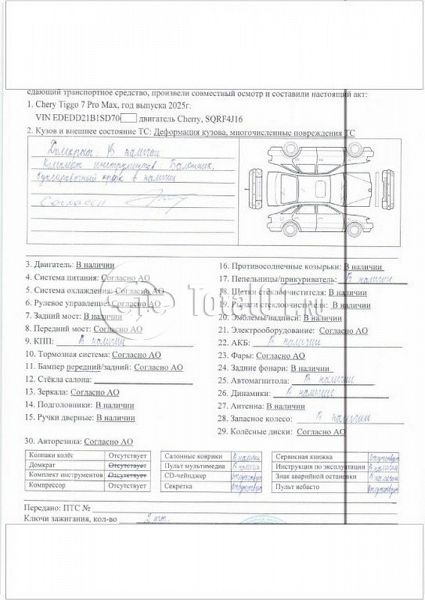 сдающий транспортное средство, произвели совместный осмотр и составили настоящий акт:
1. Chery Tiggo 7 Pro Max, год выпуска 2025г.
VIN EDEDD21B1SD70 двигатель Cherry, SQRF4J16
2. Кузов и внешнее состояние ТС: Деформация кузова, многочисленные повреждения ТС
Домкрат В наличии
Комплект инструментов Балонник,
буксировочный крюк в наличии
Согласен
3. Двигатель: В наличии
4. Система питания: Согласно АО
5. Система охлаждения: Согласно АО
6. Рулевое управление: Согласно АО
7. Задний мост: В наличии
8. Передний мост: Согласно АО
9. КПП: В наличии
10. Тормозная система: Согласно АО
11. Бампер передний/задний: Согласно АО
12. Стёкла салона:
13. Зеркала: Согласно АО
14. Подголовники: В наличии
15. Ручки дверные: В наличии
16. Противосолнечные козырьки: В наличии
17. Пепельницы/прикуриватель: В наличии
18. Щетки стеклоочистителя: В наличии
19. Рычаги стеклоочистителя: В наличии
20. Эмблемы/надписи: В наличии
21. Электрооборудование: Согласно АО
22. АКБ: В наличии
23. Фары: Согласно АО
24. Задние фонари: В наличии
25. Автомагнитола: В наличии
26. Динамики: В наличии
27. Антенна: В наличии
28. Запасное колесо: В наличии
29. Колёсные диски: Согласно АО
30. Авторезина: Согласно АО
Колпаки колёс Отсутствует
Домкрат Отсутствует
Комплект инструментов Отсутствует
Компрессор Отсутствует
Салонные коврики В наличии
Пульт мультимедиа В наличии
CD-чейнджер отсутствует
Секретка отсутствует
Сервисная книжка Отсутствует
Инструкция по эксплуатации В наличии
Знак аварийной остановки В наличии
Пульт вебасто Отсутствует
Передано: ПТС №
Ключи зажигания, кол-во 2 шт.